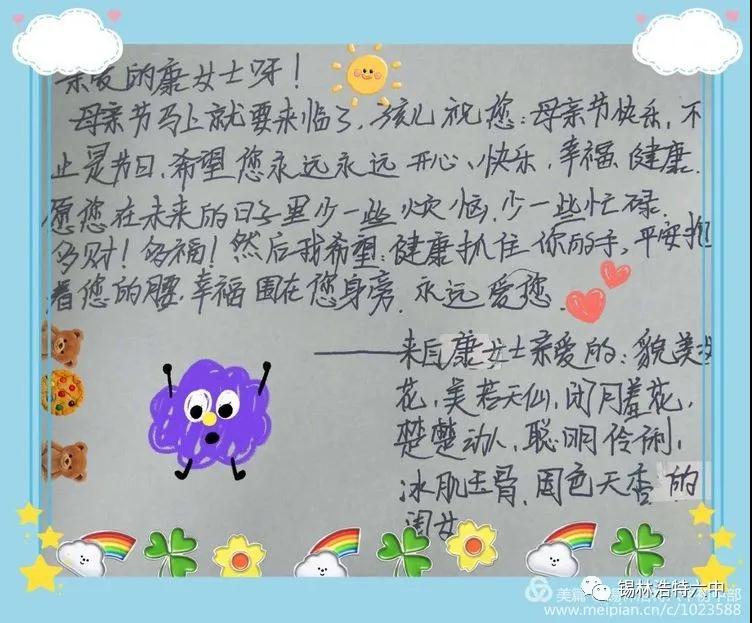 亲爱的康女士呀！
母亲节马上就要来临了，孩儿祝您：母亲节快乐，不
止是节日，希望您永远永远开心、快乐，幸福，健康.
愿您在未来的日子里少一些烦恼，少一些忙碌.
多财！多福！然后我希望：健康抓住你的手，平安抱
着您的腰，幸福围在您身旁.永远爱您.
——来自康女士亲爱的：貌美如
花，美若天仙，闭月羞花，
楚楚动人，聪明伶俐，
冰肌玉骨，国色天香的
闺女
美篇
锡林浩特六中
部
www.meipian.cn/c/1023588